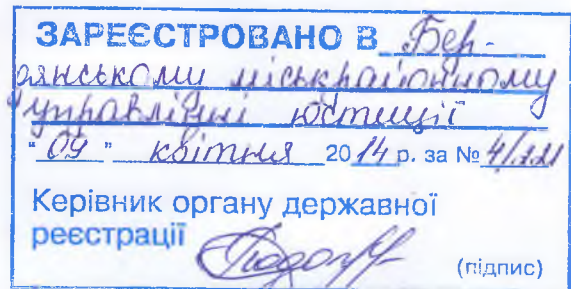 ЗАРЕЄСТРОВАНО В Бер-
дянському міськрайонному
управлінні юстиції
"09" квітня 2014 р. за № 4/121
Керівник органу державної
реєстрації
(підпис)